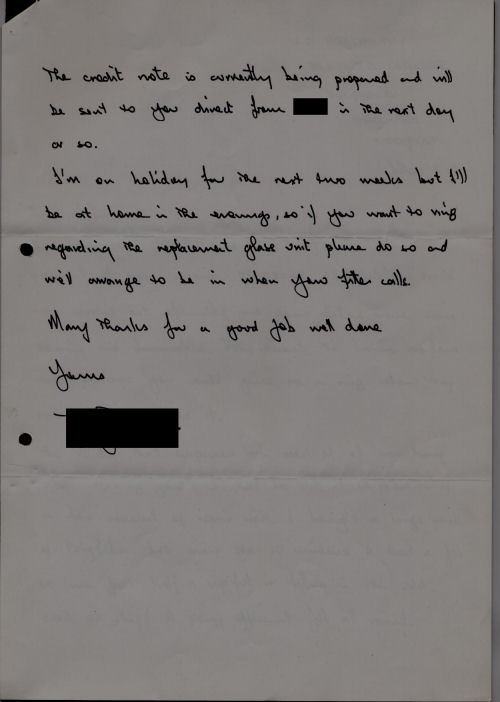 The credit note is currently being prepared and will
be sent to you direct from in the next day
or so.
I'm on holiday for the next two weeks but I'll
be at home in the evenings, so if you want to ring
regarding the replacement glass unit please do so and
we'll arrange to be in when your fitter calls.
Many Thanks for a good job well done
Yours